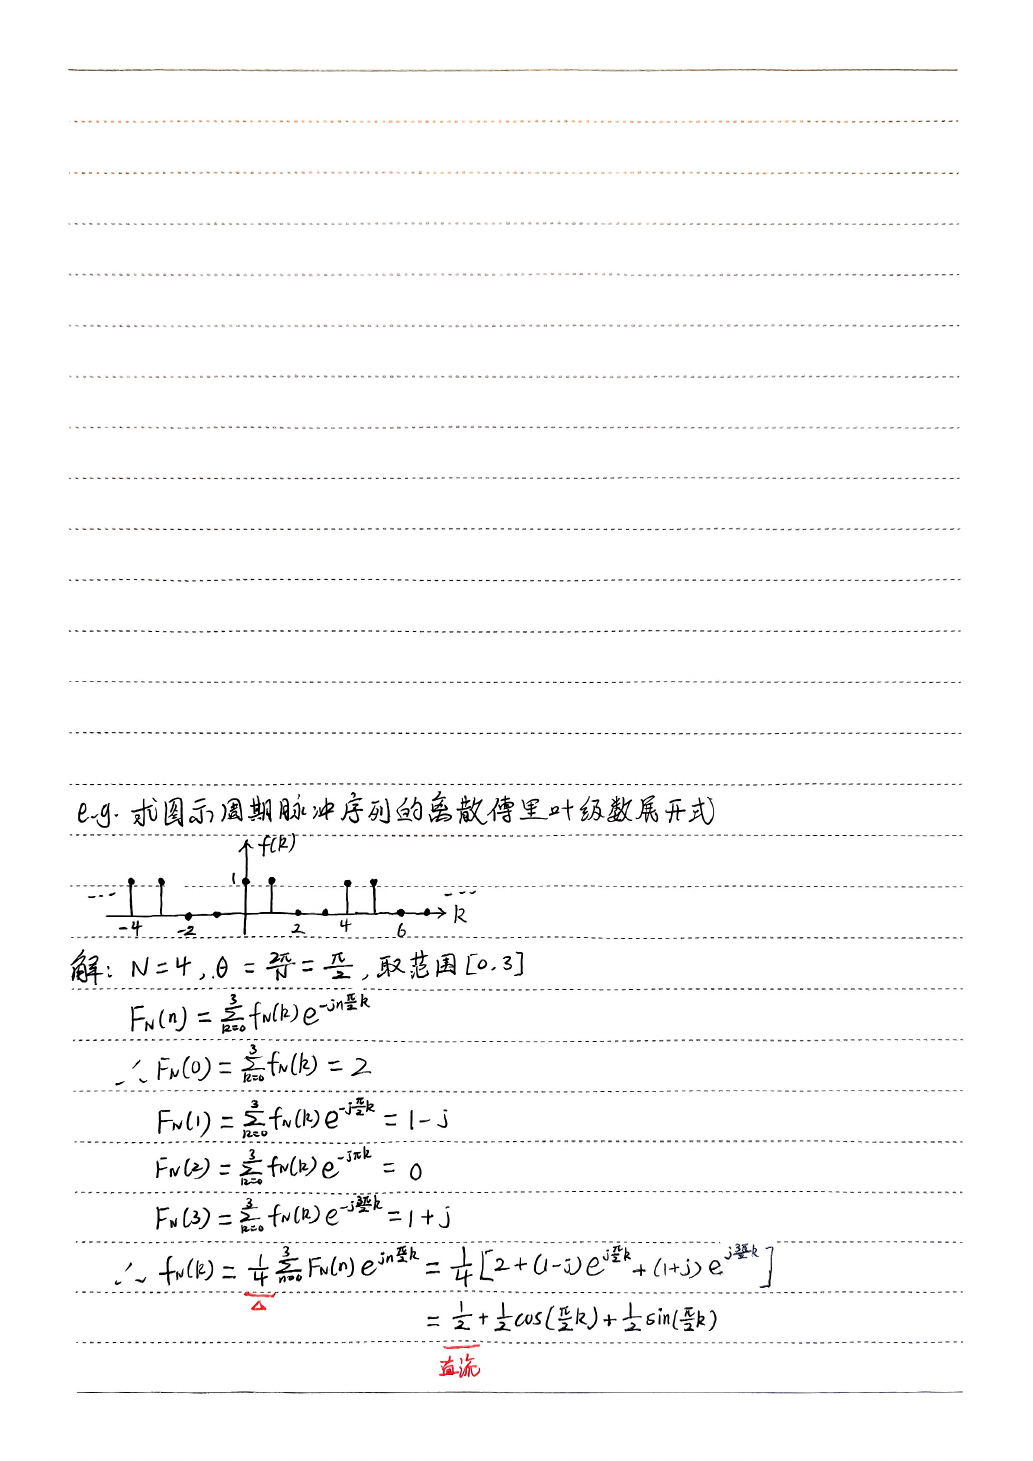 e.g. 求图示周期脉冲序列的离散傅里叶级数展开式
f(k)
1
-4 -2 2 4 6 k
解: N=4, θ = 2π/N = π/2, 取范围[0,3]
F_N(n) = ∑_{k=0}^{3} f_N(k) e^{-jn π/2 k}
∴ F_N(0) = ∑_{k=0}^{3} f_N(k) = 2
F_N(1) = ∑_{k=0}^{3} f_N(k) e^{-j π/2 k} = 1-j
F_N(2) = ∑_{k=0}^{3} f_N(k) e^{-jπk} = 0
F_N(3) = ∑_{k=0}^{3} f_N(k) e^{-j 3π/2 k} = 1+j
∴ f_N(k) = 1/4 ∑_{n=0}^{3} F_N(n) e^{jn π/2 k} = 1/4 [2+(1-j)e^{j π/2 k}+(1+j)e^{j 3π/2 k}]
= 1/2 + 1/2 cos(π/2 k) + 1/2 sin(π/2 k)
直流